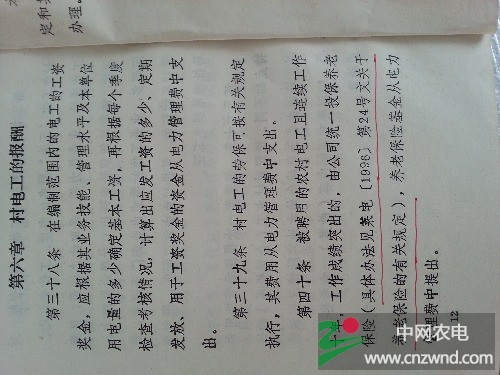 定和
办理。
第六章 村电工的报酬
第三十八条 在编制范围内的电工的工资
奖金，应根据其业务技能、管理水平及本单位
用电量的多少确定基本工资，再根据每个季度
检查考核情况，计算出应发工资的多少，定期
发放、用于工资奖金的资金从电力管理费中支
出。
第三十九条 村电工的劳保可按有关规定
执行，其费用从电力管理费中支出。
第四十条 被聘用的农村电工且连续工作
十年，工作成绩突出的，由公司统一投保养老
保险（具体办法见莱电〔1996〕第24号文关于
养老保险的有关规定），养老保险基金从电力
管理费中提出。
12
中网农电
www.cnzwnd.com